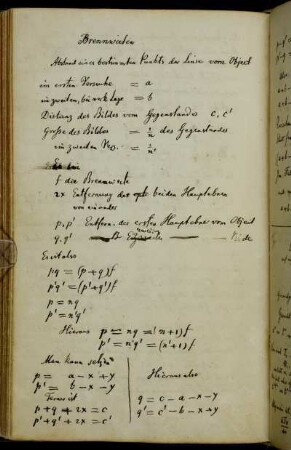 Brennweiten
Abstand eines bestimmten Punktes der Linse vom Object
im ersten Versuche = a
im zweiten, bei verk. Lage = b
Distanz des Bildes vom Gegenstande c, c'
Grösse des Bildes = 1/n des Gegenstandes
im zweiten Vers. = 1/n'
f die Brennweite
2x Entfernung der beiden Hauptebenen
von einander
p, p' Entfern. der ersten Hauptebene vom Object
q, q' der zweiten Bilde
Es ist also
pq = (p+q)f
p'q' = (p'+q')f
p = nq
p' = n'q'
Hieraus p = nq = (n+1)f
p' = n'q' = (n'+1)f
Man kann setzen
p = a - x + y
p' = b - x - y
Ferner ist
p + q + 2x = c
p' + q' + 2x = c'
Hieraus also
q = c - a - x - y
q' = c' - b - x + y